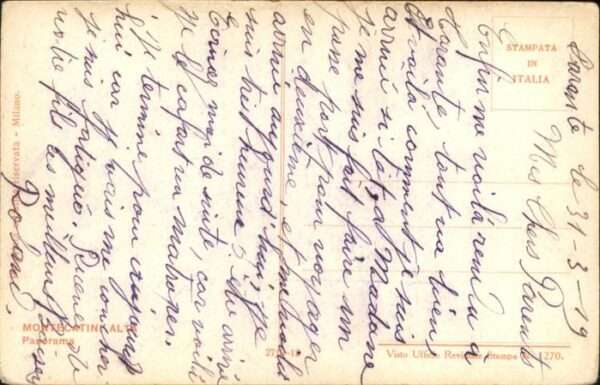 Tarante le 31-3-19
Mes Chers Parents
Enfin me voilà rendu a
Tarante, tout va bien,
Et voilà comment je suis
arrivé si tôt, a Modane
je me suis fait faire un
passe port pour voyager
en deuxième, et me voila
arrivé aujourd'hui, je
suis très heureux arrivé
moi de suite, car voilà
le cafard va
Je termine pour aujourd
hui car je vais me coucher
je suis fatigué. Recevez de
votre fils les meilleurs baisers
Roland
STAMPATA
IN
ITALIA
riservata - Milano.
MONTECATINI ALTO
Panorama
Visto Ufficio Revisione Stampa N. 1270.